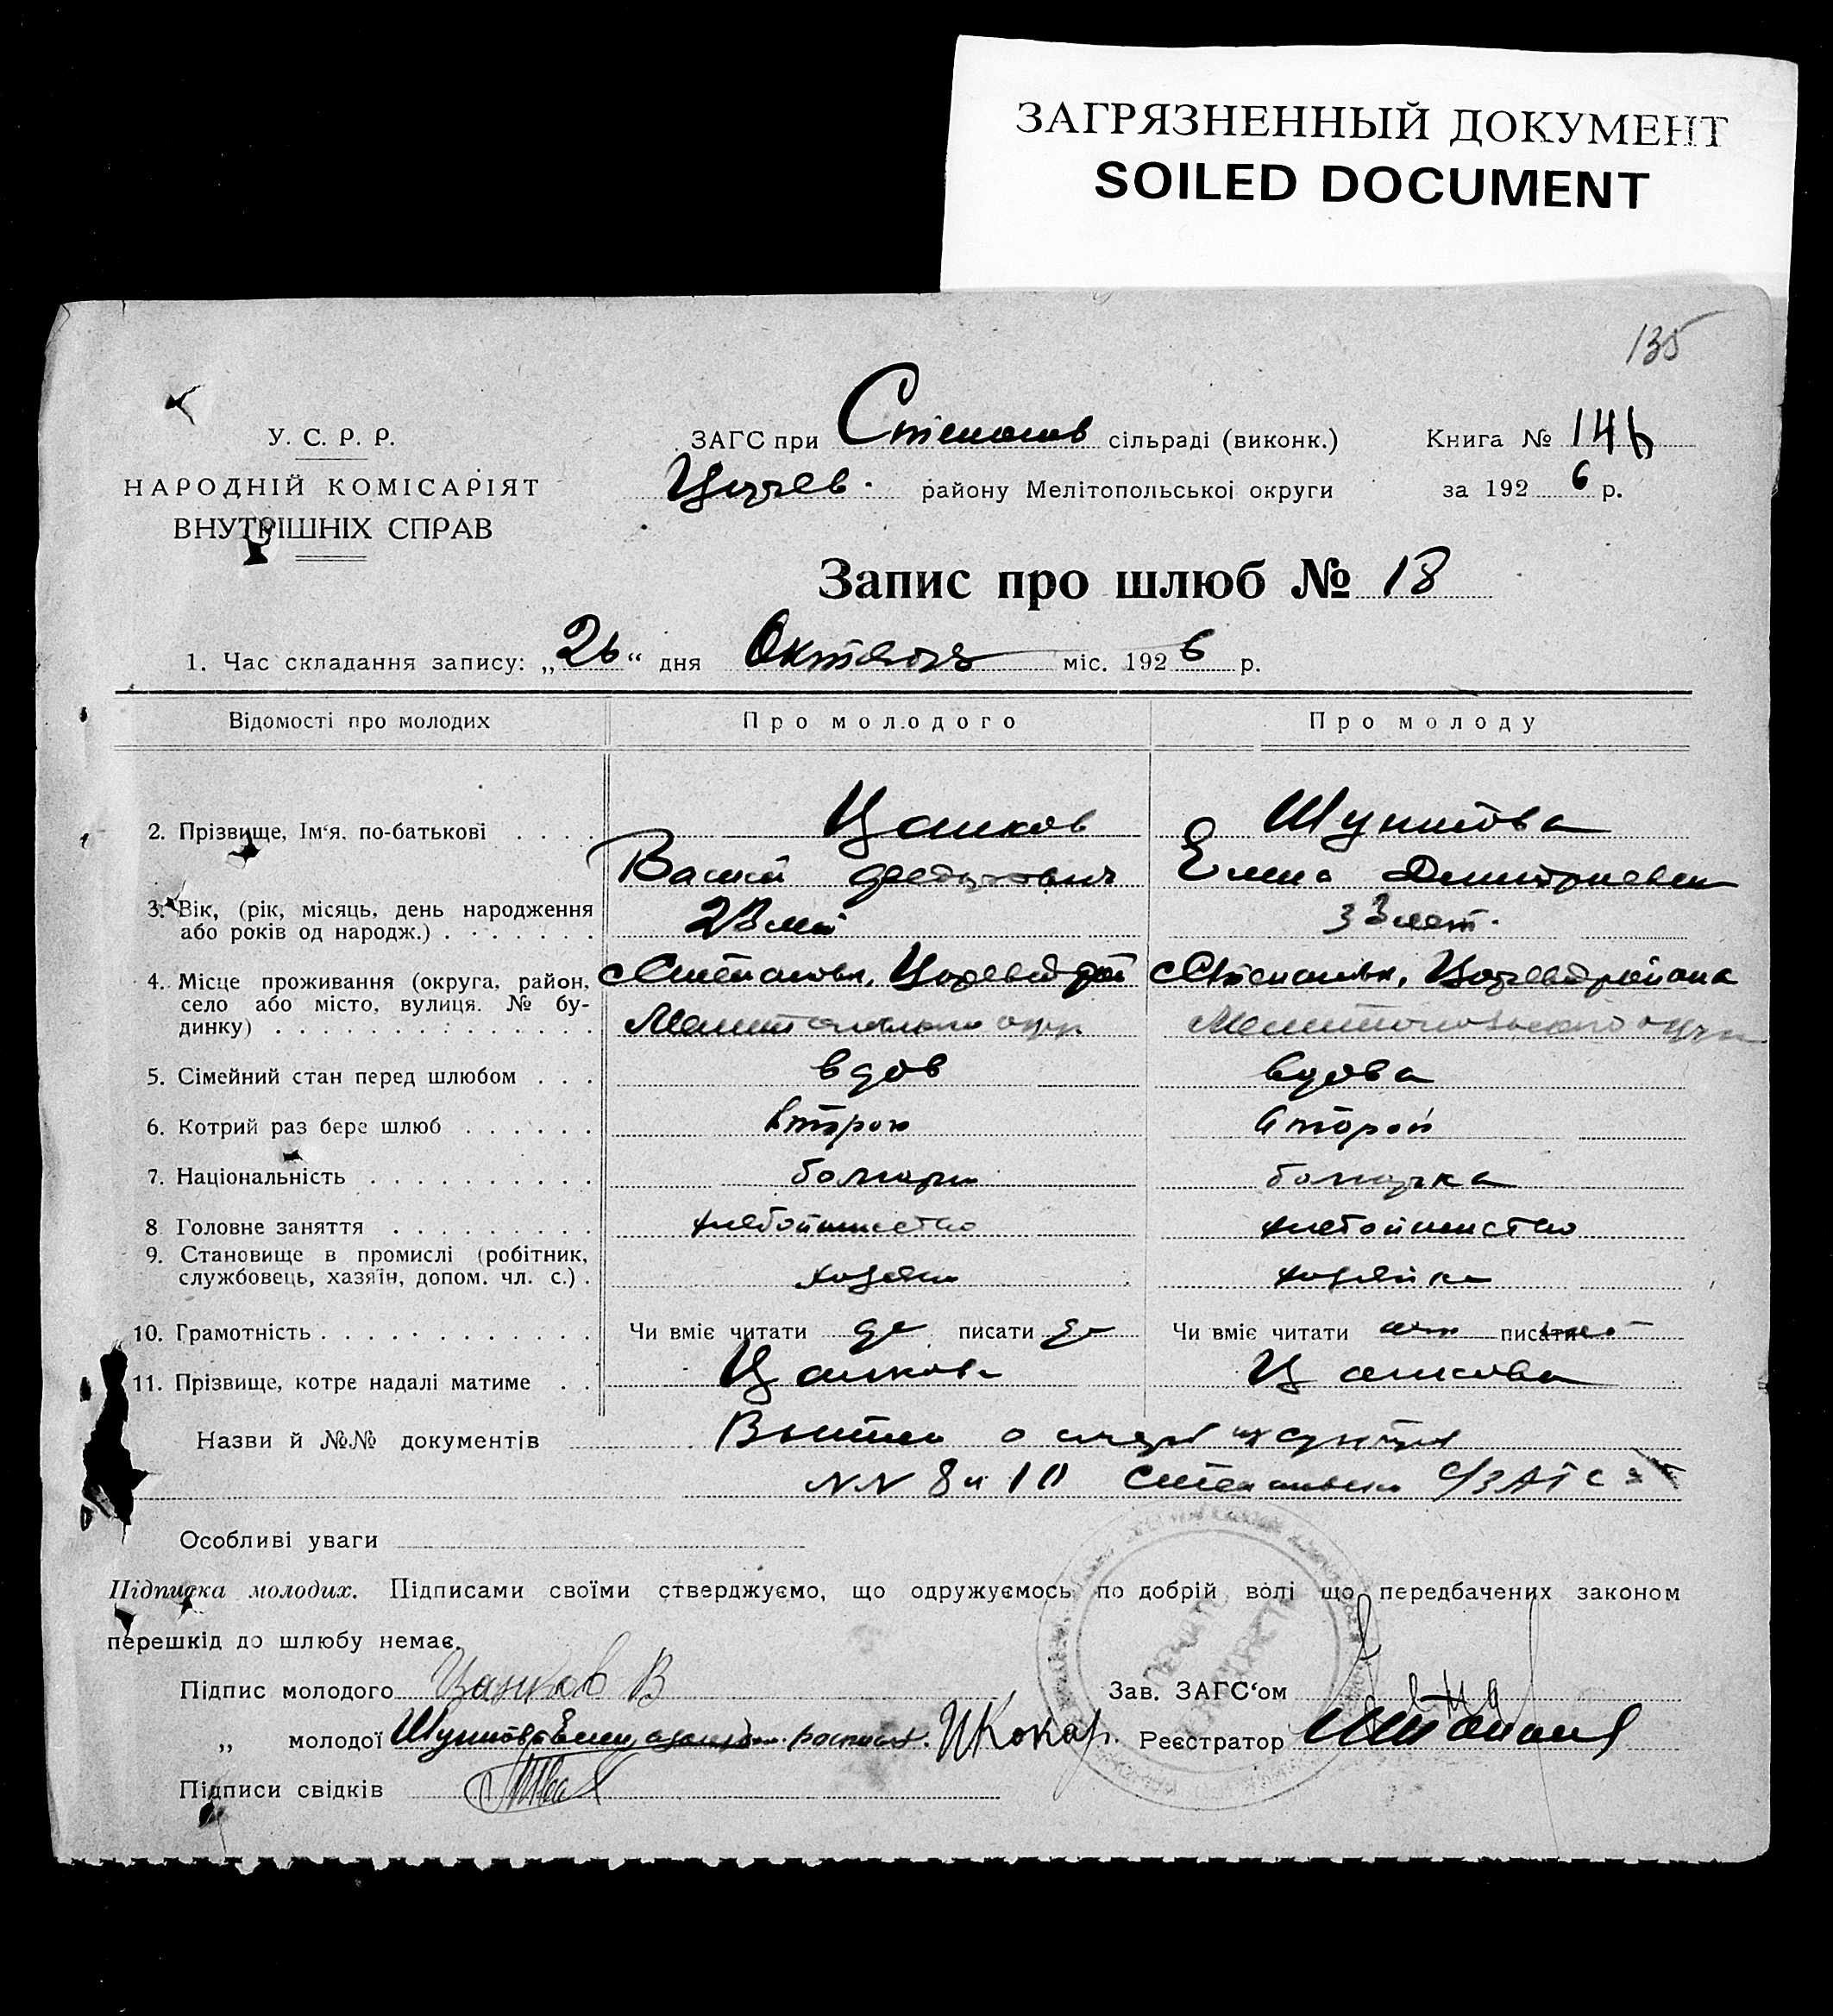 ЗАГРЯЗНЕННЫЙ ДОКУМЕНТ
SOILED DOCUMENT
135
У. С. Р. Р.
НАРОДНІЙ КОМІСАРІЯТ
ВНУТРІШНІХ СПРАВ
ЗАГС при Степанов сільраді (виконк.)
Книга № 146
району Мелітопольської округи
за 1926 р.
Запис про шлюб № 18
1. Час складання запису: „26“ дня Октября міс. 1926 р.
Відомості про молодих Про молодого Про молоду
2. Прізвище, Ім‘я, по-батькові . . . . Цанков Шунитова
Елена Дмитриевна
3. Вік, (рік, місяць, день народження
або років од народж.) . . . . . . . 28 лет 33 лет.
4. Місце проживання (округа, район,
село або місто, вулиця. № бу-
динку) . . . . . . . . . . . . . .
5. Сімейний стан перед шлюбом . . . вдов вдова
6. Котрий раз бере шлюб . . . . . . второй второй
7. Національність . . . . . . . . . . болгарин болгарка
8 Головне заняття . . . . . . . . . хлебопашество хлебопашество
9. Становище в промислі (робітник,
службовець, хазяїн, допом. чл. с.) . хозяин хозяйка
10. Грамотність . . . . . . . . . . . . Чи вміє читати да писати да Чи вміє читати писати
11. Прізвище, котре надалі матиме . . Цанков Цанкова
Назви й №№ документів о смерти
NN 8 и 10
Особливі уваги
Підписка молодих. Підписами своїми стверджуємо, що одружуємось по добрій волі що передбачених законом
перешкід до шлюбу немає.
Підпис молодого Цанков В
Зав. ЗАГС‘ом
„ молодої
Реєстратор
Підписи свідків